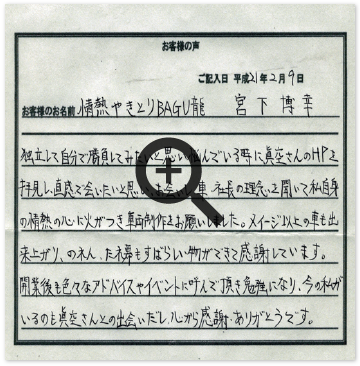 お客様の声
ご記入日 平成21年2月9日
お客様のお名前 情熱やきとりBAGU龍 宮下博幸
独立して自分で勝負してみたいと思い悩んでいる時に真空さんのHPを
拝見し、直感で会いたいと思い、お会いし、車、社長の理念を聞いて私自身
の情熱の心に火がつき車両制作をお願いしました。イメージ以上の車も出
来上がり、のれん、たれ幕もすばらしい物ができて感謝しています。
開業後も色々なアドバイスやイベントに呼んで頂き勉強になり、今の私が
いるのも真空さんとの出会いだし、心から感謝・ありがとうです。